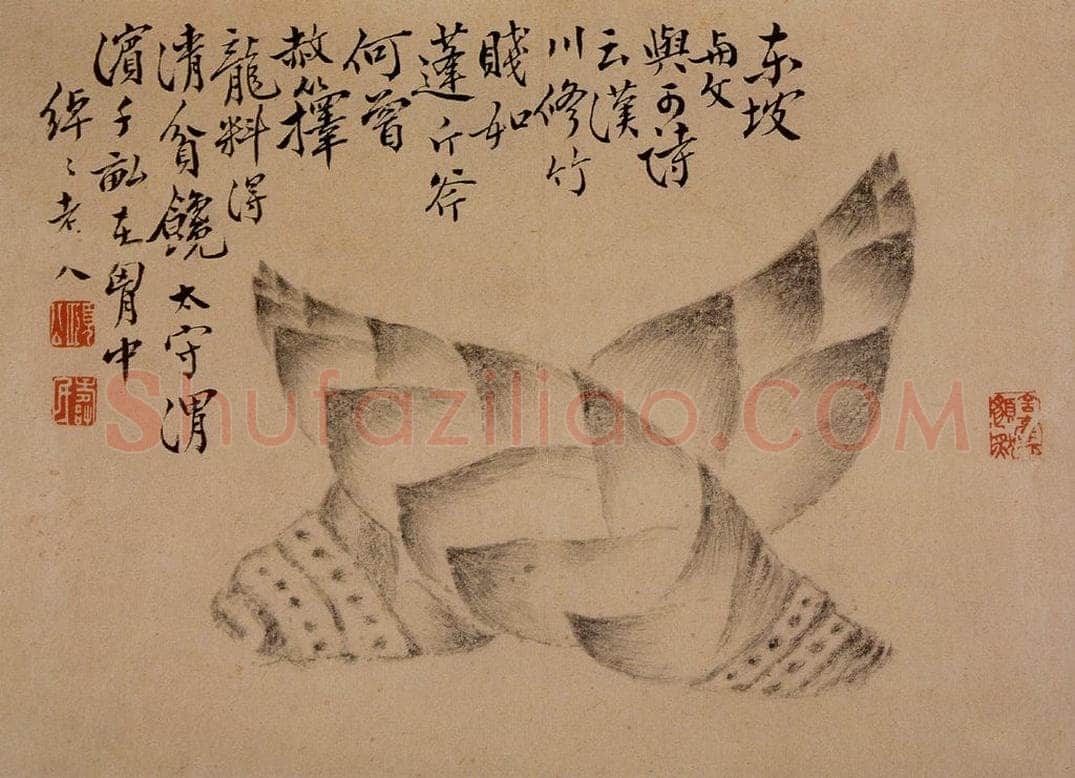 东坡
與文
與可詩
云漢
川修竹
賤如
蓬斤斧
何曾
赦籜
龍料得
清貧饞太守渭
濱千畝在胷中
老人
Shufaziliao.COM